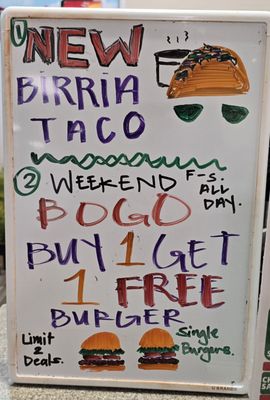 1 NEW
BIRRIA
TACO
2 WEEKEND F-S.
ALL
DAY.
BOGO
BUY 1 GET
1 FREE
BURGER
Limit
2
Deals.
Single
Burgers.